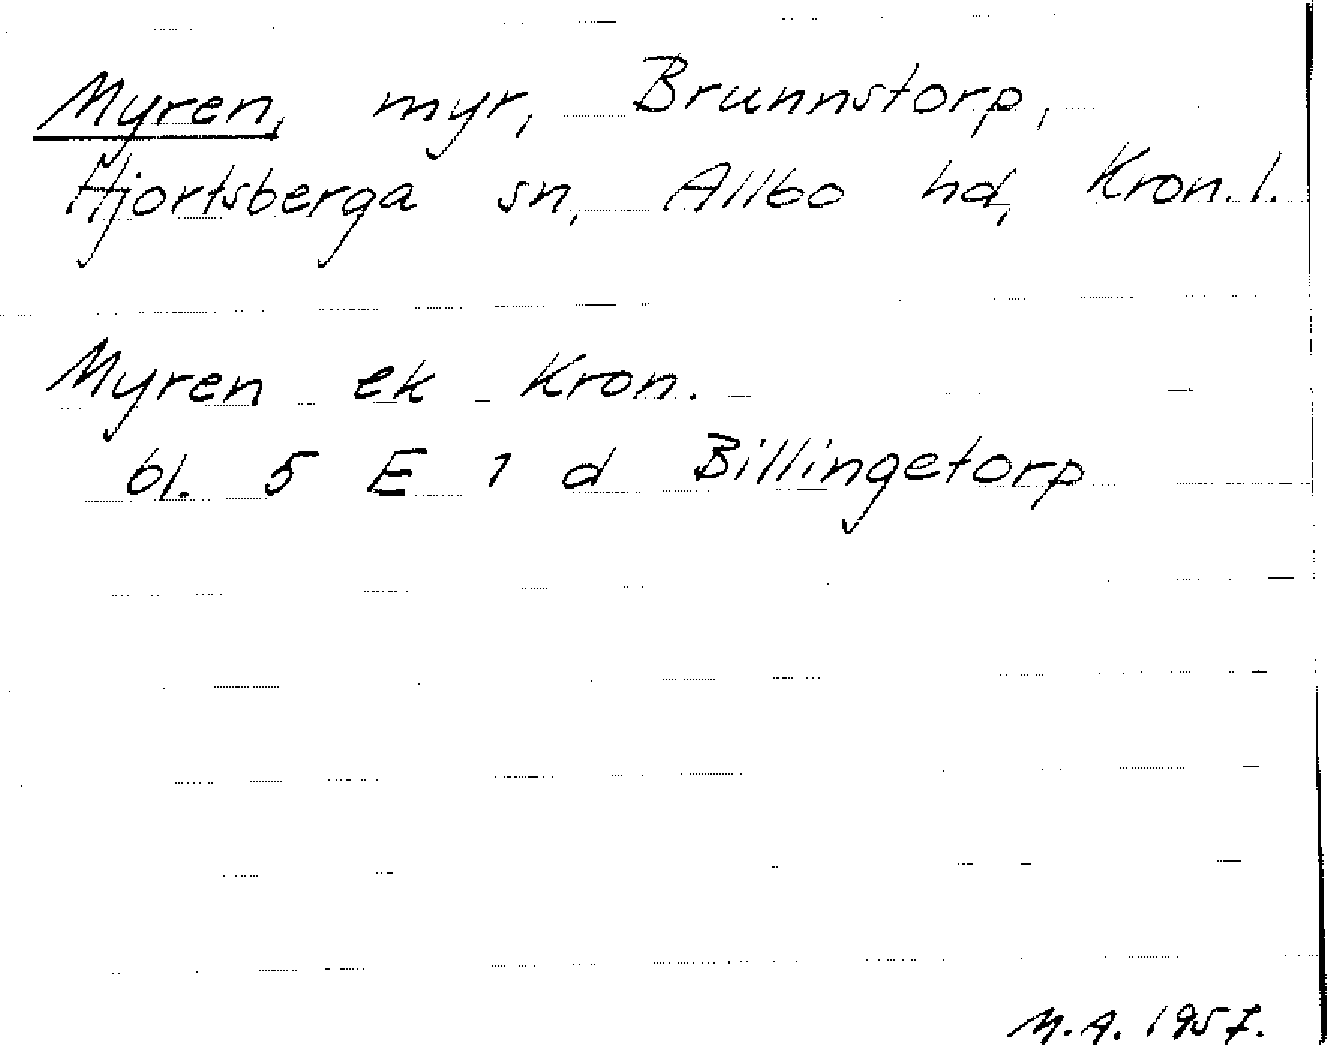 Myren, myr, Brunnstorp,
Hjortsberga sn, Allbo hd, Kron.l.
Myren ek Kron.
bl. 5 E 1 d Billingetorp
M.A. 1957.